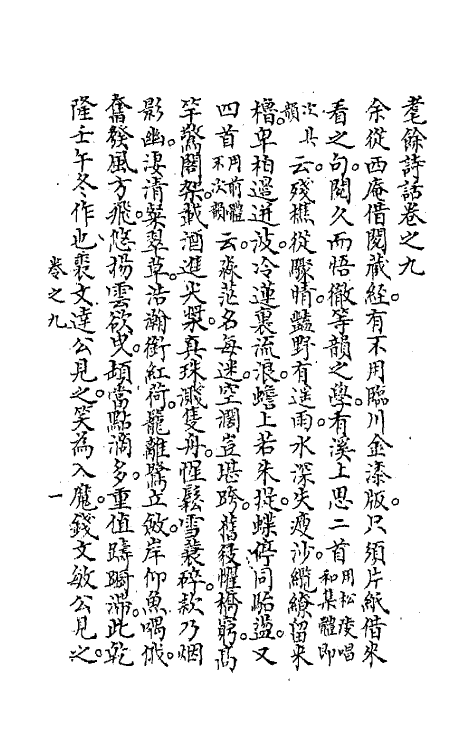 耄餘詩話卷之九
余從西庵借閱藏經。有不用臨川金漆版。只須片紙借來
看之句。閱久而悟徹等韻之學。有溪上思二首用松陵唱和集體即
次其韻云。殘樵從驟晴。豔野有迷雨。水深失瘦沙。纜繚留來
櫓。卑柏過迸波。冷蓮裏流浪。蟾上若朱捉。蝶停同骀盪。又
四首用前體不次韻云。淼茫名每迷。空濶豈堪跨。舊役懼橋窮。高
竿驚閣架。載酒進尖槳。真珠濺隻舟。惺鬆雪蓑碎。欸乃烟
影幽。淒清葉翠草。浩瀚銜紅荷。籠離鷺立敏。岸仰魚喁俄。
奮發風方飛。悠揚雲欲曳。頔當點滴多。重值躊躇滯。此乾
隆壬午冬作也。裘文達公見之。笑為入魔。錢文敏公見之。
卷之九
一